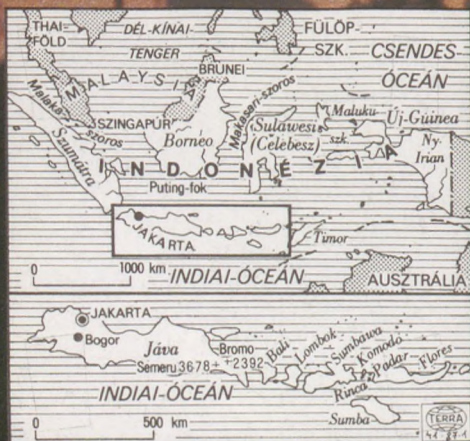 THAI-
FÖLD
DÉL-KÍNAI-
TENGER
FÜLÖP-
SZK.
CSENDES
ÓCEÁN
MALAYSIA
BRUNEI
Malaka-szoros
SZINGAPÚR
Borneó
Makasari-szoros
Sulawesi
(Celebesz)
Maluku
szk.
Új-Guinea
Ny.-
Irian
Szumátra
INDONÉZIA
Puting-fok
JAKARTA
Timor
0 1000 km
INDIAI-ÓCEÁN
AUSZTRÁLIA
JAKARTA
Bogor
Jáva
Bromo
2392
Semeru 3678
Bali
Lombok
Sumbawa
Komodo
Padar
Flores
Rinca
Sumba
INDIAI-ÓCEÁN
0 500 km
TERRA